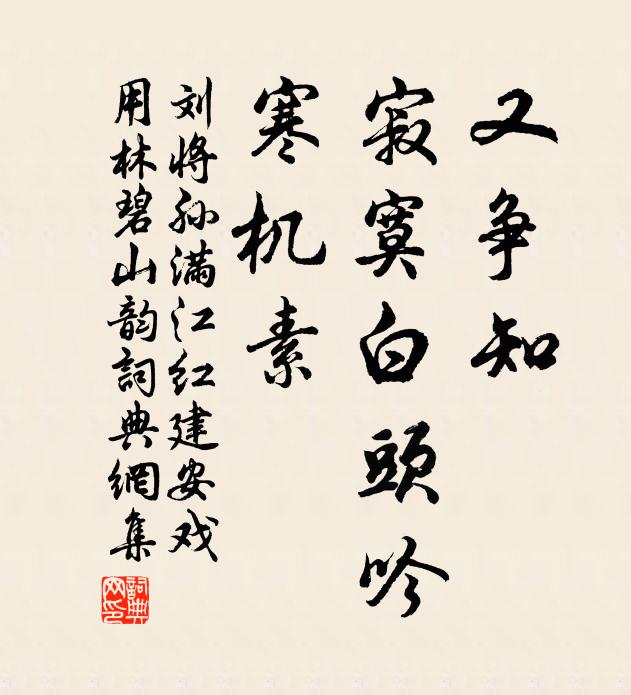 又争知
寂寞白頭吟
寒机素
刘将孙满江红建安戏
用林碧山韵詞典網集
詞典网印